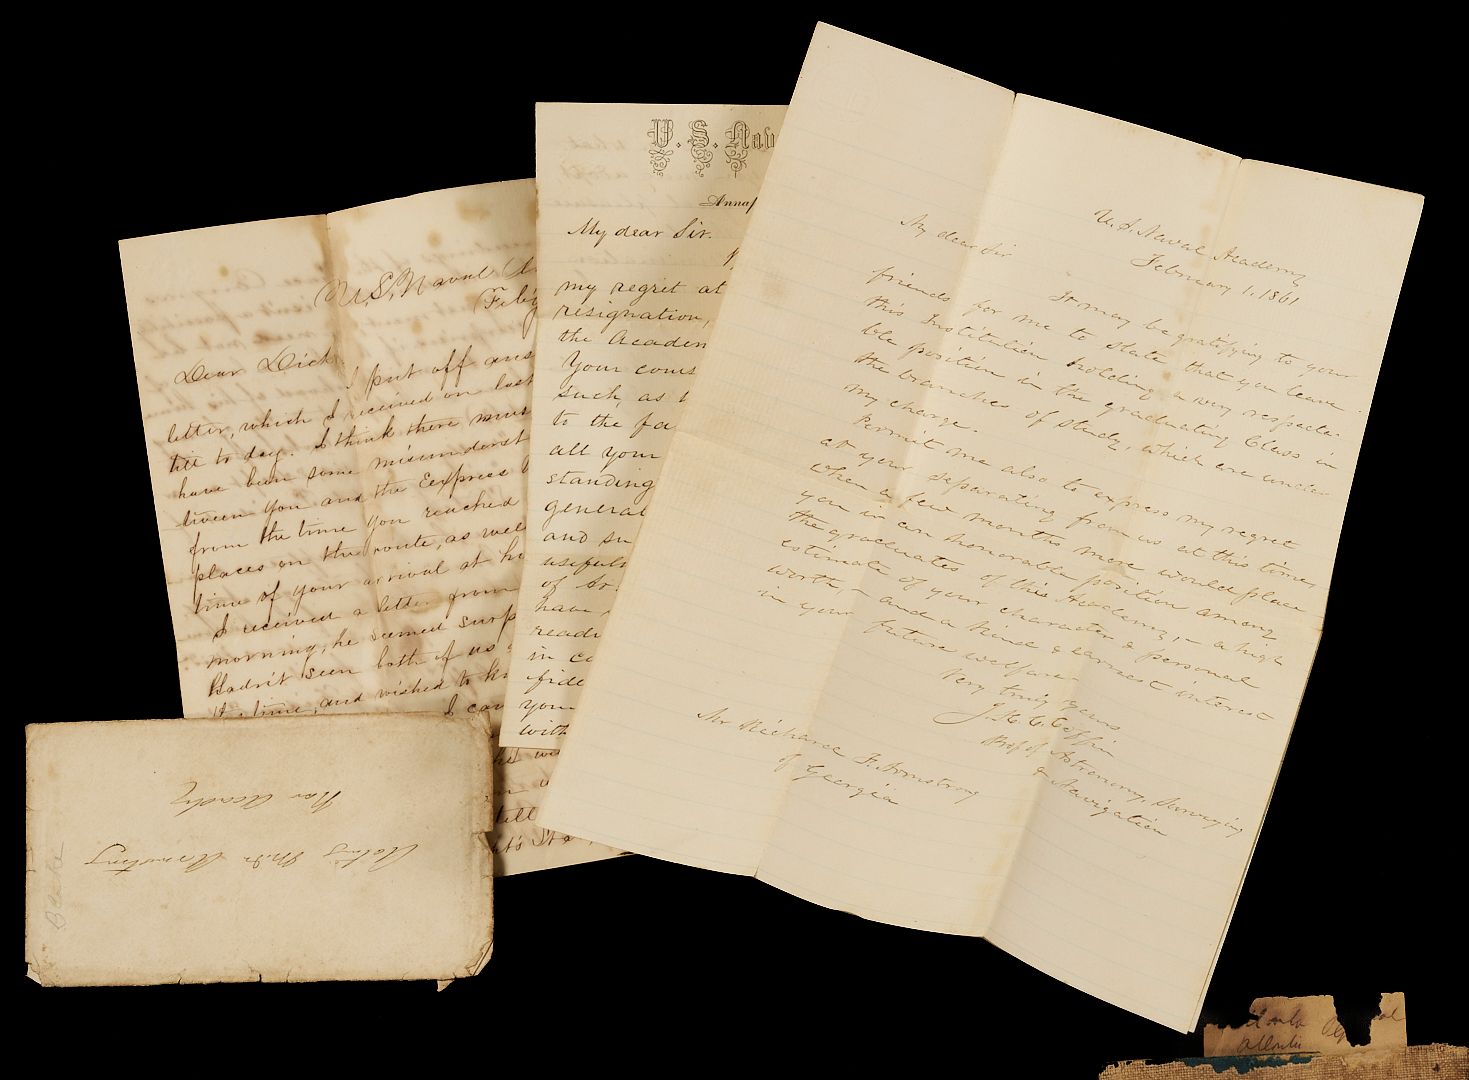 U.S. Naval
Feb'y
Dear Dick,
I put off ans
letter, which I received on last
till to day. I think there must
have been some misunderst
tween you and the Express
from the time you reached
places on the route, as wel
time of your arrival at ho
I received a letter from
morning, he seemed surp
Hadn't seen both of us
time, and wished to kn
I can
tell
U. S. Nav
Annap
My dear Sir.
my regret at
resignation,
the Academ
Your cours
such, as t
to the fa
all your
standing
general
and su
usefuln
of
have
readi
in co
fide
your
with
U.S. Naval Academy
February 1, 1861
My dear Sir
It may be gratifying to your
friends for me to state that you leave
this Institution holding a very respecta-
ble position in the graduating Class in
the branches of study, which are under
my charge.
Permit me also to express my regret
at your separating from us at this time,
when a few months more would place
you in an honorable position among
the graduates of this Academy, – a high
estimate of your character & personal
worth, – and a kind & earnest interest
in your future welfare
Very truly yours
J. H. C. Coffin
Prof of Astronomy, Surveying
& Navigation
Mr Richard F. Armstrong
of Georgia
Acting M.dn Armstrong
Nav Academy